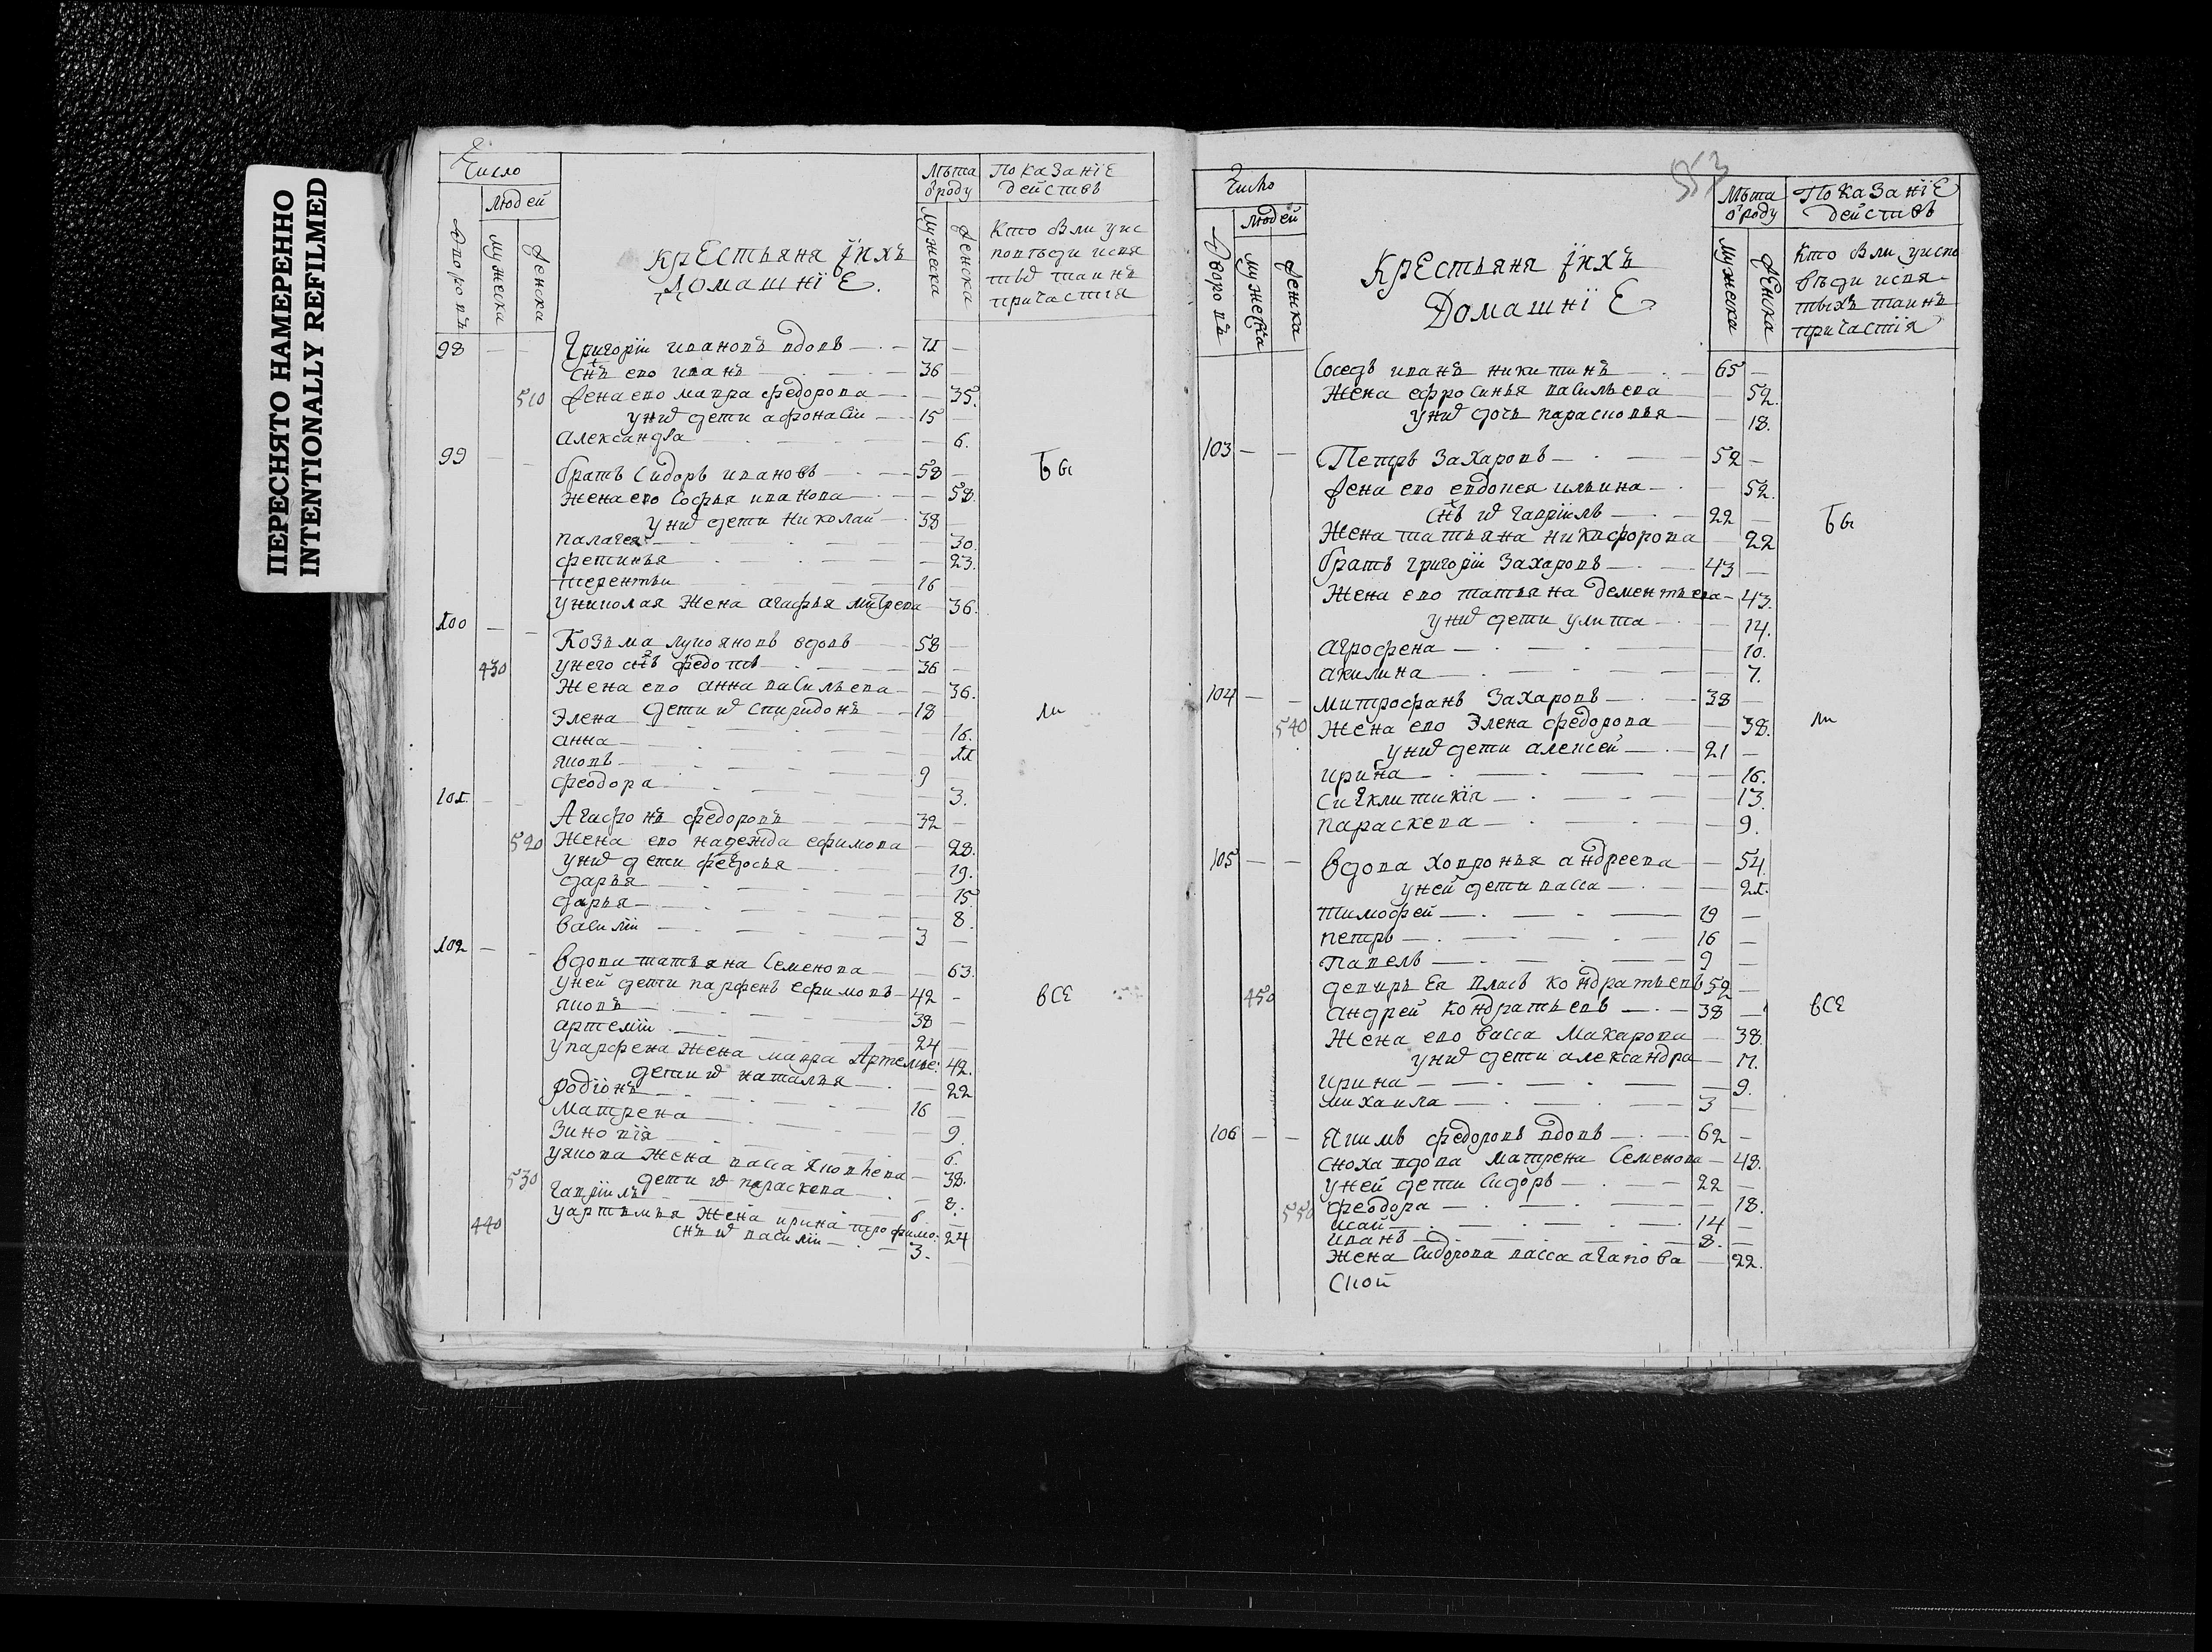 ПЕРЕСНЯТО НАМЕРЕННО
INTENTIONALLY REFILMED
Число
Людей
Дворовъ
Мужеска
Женска
Крестьяня їихъ
Домашнїе.
Лѣта
ѿроду
Мужеска
Женска
Показанїе
действъ
Кто были уис
поведи исвя
тыѿ таинъ
причастия
98 — — Григорїи ивановъ вдовъ — 71 —
снъ ево иванъ — 36 —
510 Жена ево мавра федорова — — 35.
униѿ дети афонасїи — 15 —
александра — — 6.
99 — — братъ Сидоръ ивановъ — 58 —
Жена ево Софья иванова — — 58.
униѿ дети Николаи — 38 —
палагея — — 30.
фетинья — — 23.
терентьи — 16
униколая Жена агафья митрева — 36.
100 — — Козьма лукояновъ вдовъ — 58 —
430 унего снъ федотъ — 36 —
Жена ево анна васильева — — 36.
дети ѿ спиридонъ — 18 —
Элена — — 16.
анна — — 11
яковъ — 9 —
феодора — — 3.
101. — — Агафонъ федоровъ — 32 —
520 Жена ево надежда ефимова — 28.
униѿ дети федосья — — 19.
дарья — — 15.
дарья — — 8.
василїи — 3 —
102 — — вдова татьяна Семенова — — 63.
уней дети парфенъ ефимовъ — 42 —
яковъ — 38 —
артемїи — 24 —
упарфена Жена мавра Артемье: 42.
дети ѿ наталья — — 22
родїонъ — 16 —
матрена — — 9.
Зиновїя — — 6.
уякова Жена васса яковлева — 38.
530 дети ѿ параскева — — 8.
гаврїилъ — 6 —
уартемья Жена ирина трофимо: 24
440 снъ ѿ василїи — 3. —
Бы
ли
все
553
Число
Людей
Дворовъ
мужеска
женска
Крестьяня їихъ
Домашнїе
Лѣта
ѿроду
мужеска
женска
Показанїе
действъ
Кто были уиспо
вѣди исвя-
тыхъ таинъ
причастїя
Соседъ иванъ никитинъ — 65 —
Жена ефросинья васильева — 52.
униѿ дочь парасковья — — 18.
103 — — Петръ Захаровъ — 52 —
Жена ево евдокея ильина — — 52.
снъ ѿ гаврїилъ — 22 —
Жена татьяна никифорова — 22
братъ григорїи Захаровъ — 43 —
Жена ево татьяна дементьева — 43.
униѿ дети улита — — 14.
агрофена — — 10.
акилина — — 7.
104 — — митрофанъ Захаровъ — 38 —
540 Жена ево Элена федорова — 38.
униѿ дети алексей — 21 —
ирина — — 16.
сигклитикїя — — 13.
параскева — — 9.
105 — — вдова ховронья андреева — 54.
уней дети васса — — 21.
тимофей — 19 —
петръ — 16 —
павелъ — 9 —
деверь Ея власъ кондратьевъ 52 —
450 андрей кондратьевъ — 38 —
Жена ево васса Макарова — 38.
униѿ дети александра — 11.
ирина — — 9.
михаила — 3 —
106 — — якимъ федоровъ вдовъ — 62 —
сноха вдова матрена Семенова — 48.
уней дети Сидоръ — 22 —
550 феодора — — 18.
исай — 14 —
иванъ — 8. —
жена Сидорова васса агапова — 22.
ской
Бы
ли
все